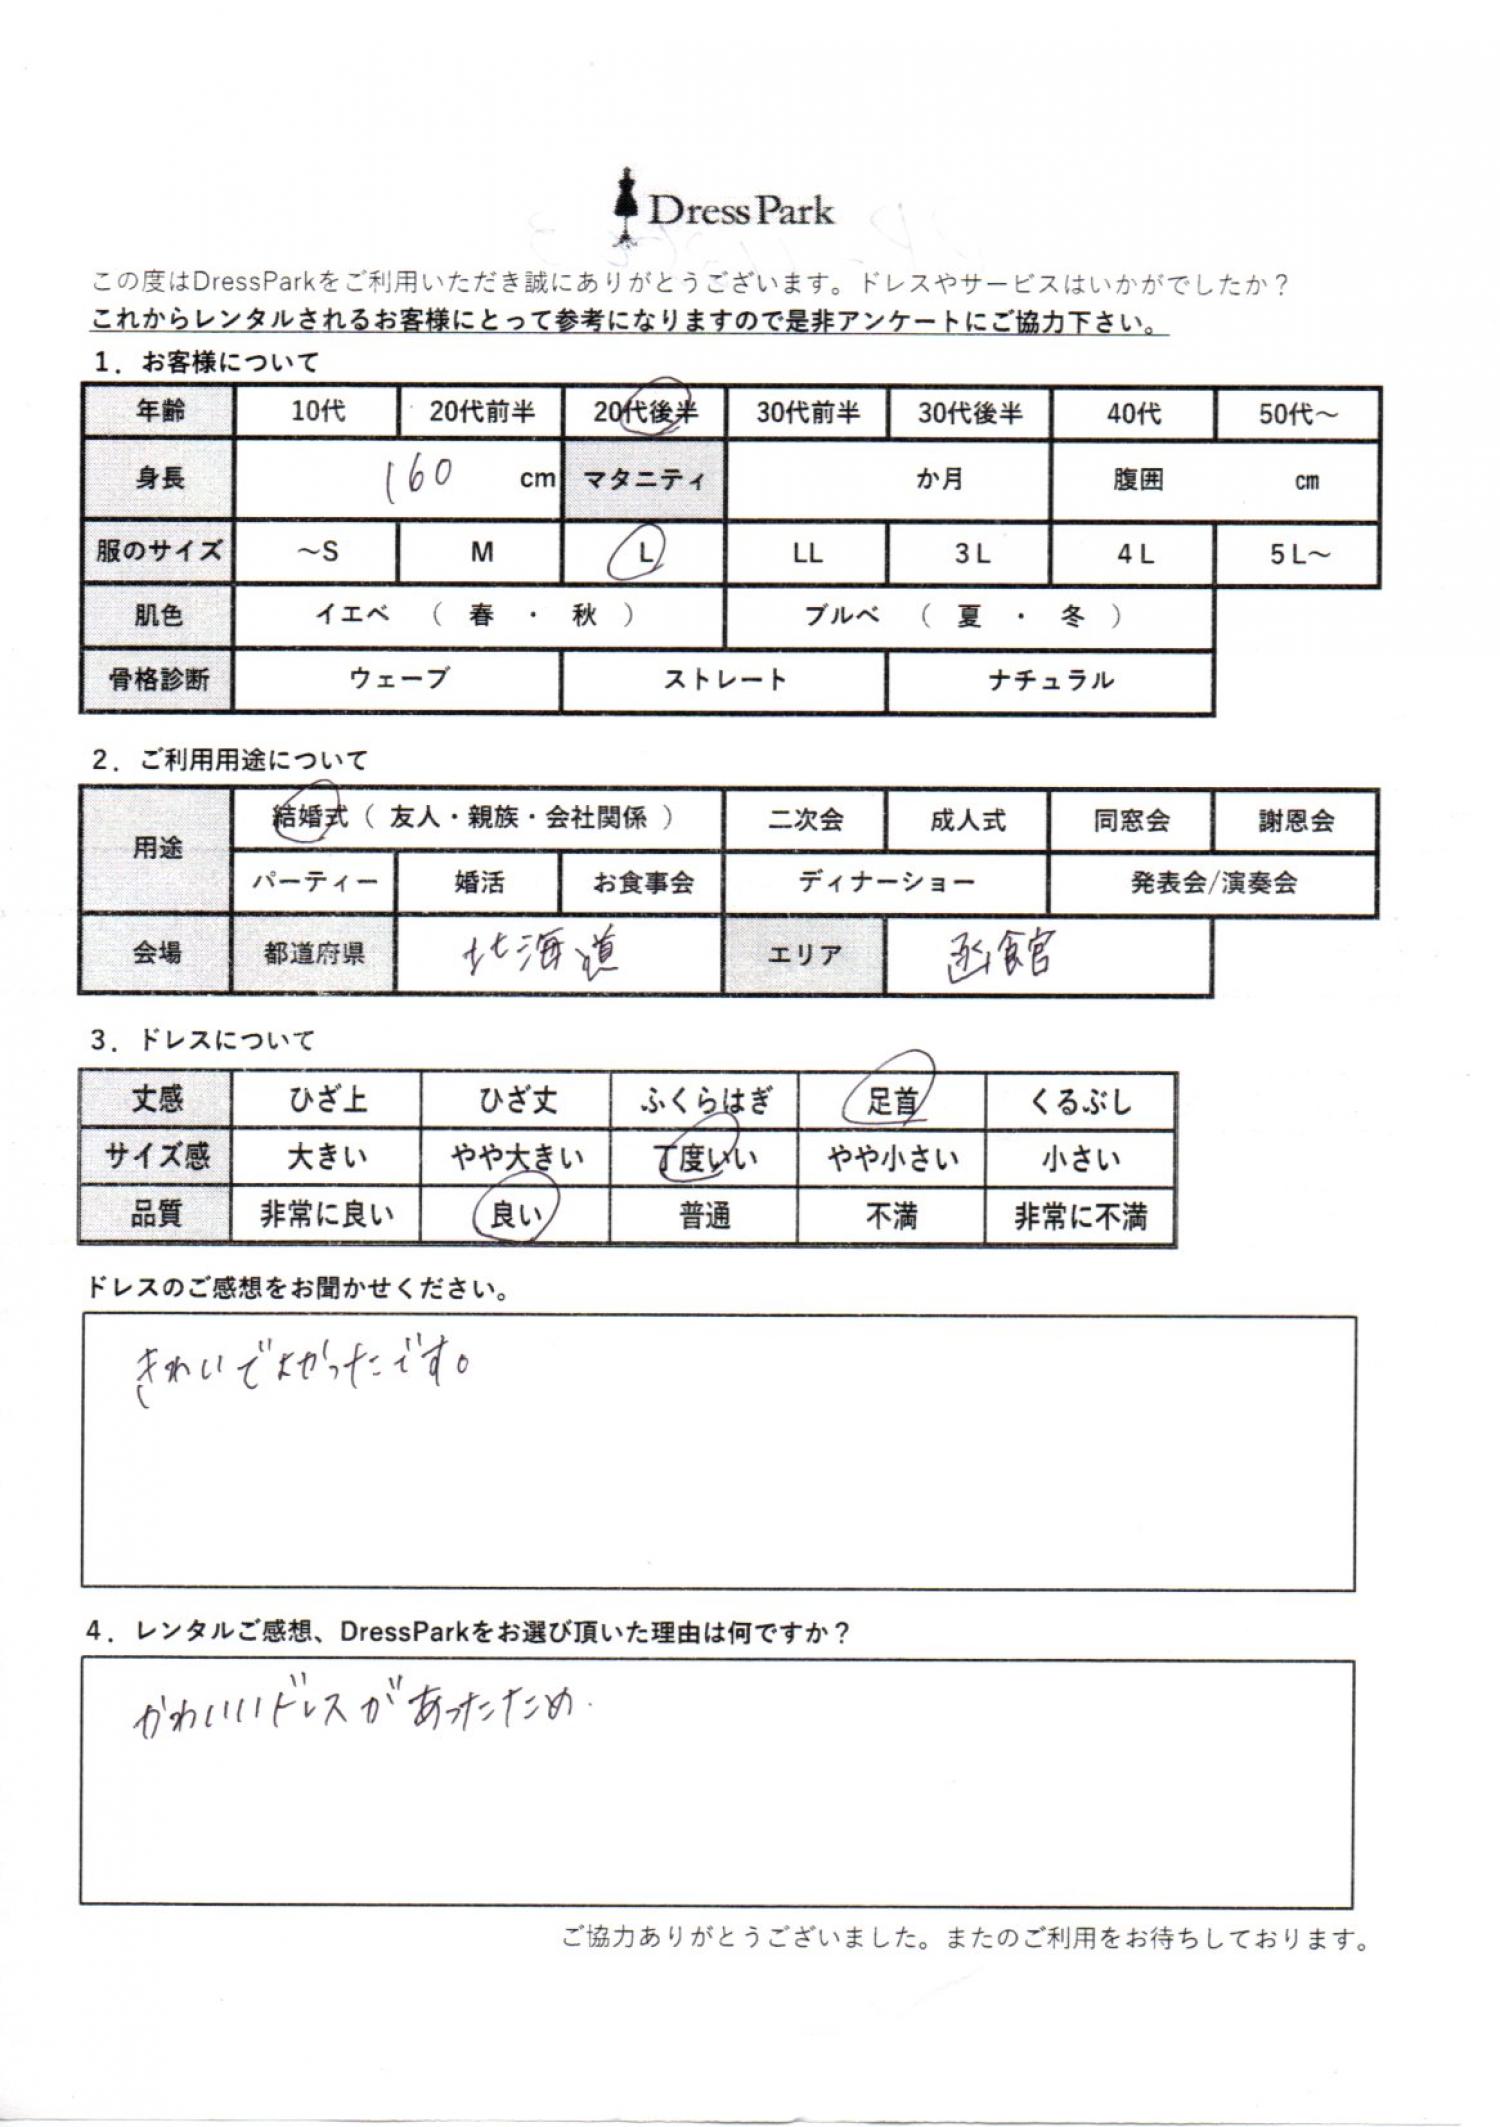 Dress Park
この度はDressParkをご利用いただき誠にありがとうございます。ドレスやサービスはいかがでしたか？
これからレンタルされるお客様にとって参考になりますので是非アンケートにご協力下さい。
1．お客様について
年齢 10代 20代前半 20代後半 30代前半 30代後半 40代 50代～
身長 160 cm マタニティ か月 腹囲 cm
服のサイズ ～S M L LL 3L 4L 5L～
肌色 イエベ （ 春 ・ 秋 ） ブルベ （ 夏 ・ 冬 ）
骨格診断 ウェーブ ストレート ナチュラル
2．ご利用用途について
用途 結婚式（ 友人・親族・会社関係 ） 二次会 成人式 同窓会 謝恩会
パーティー 婚活 お食事会 ディナーショー 発表会/演奏会
会場 都道府県 北海道 エリア 函館
3．ドレスについて
丈感 ひざ上 ひざ丈 ふくらはぎ 足首 くるぶし
サイズ感 大きい やや大きい 丁度いい やや小さい 小さい
品質 非常に良い 良い 普通 不満 非常に不満
ドレスのご感想をお聞かせください。
きれいでよかったです。
4．レンタルご感想、DressParkをお選び頂いた理由は何ですか？
かわいいドレスがあったため.
ご協力ありがとうございました。またのご利用をお待ちしております。